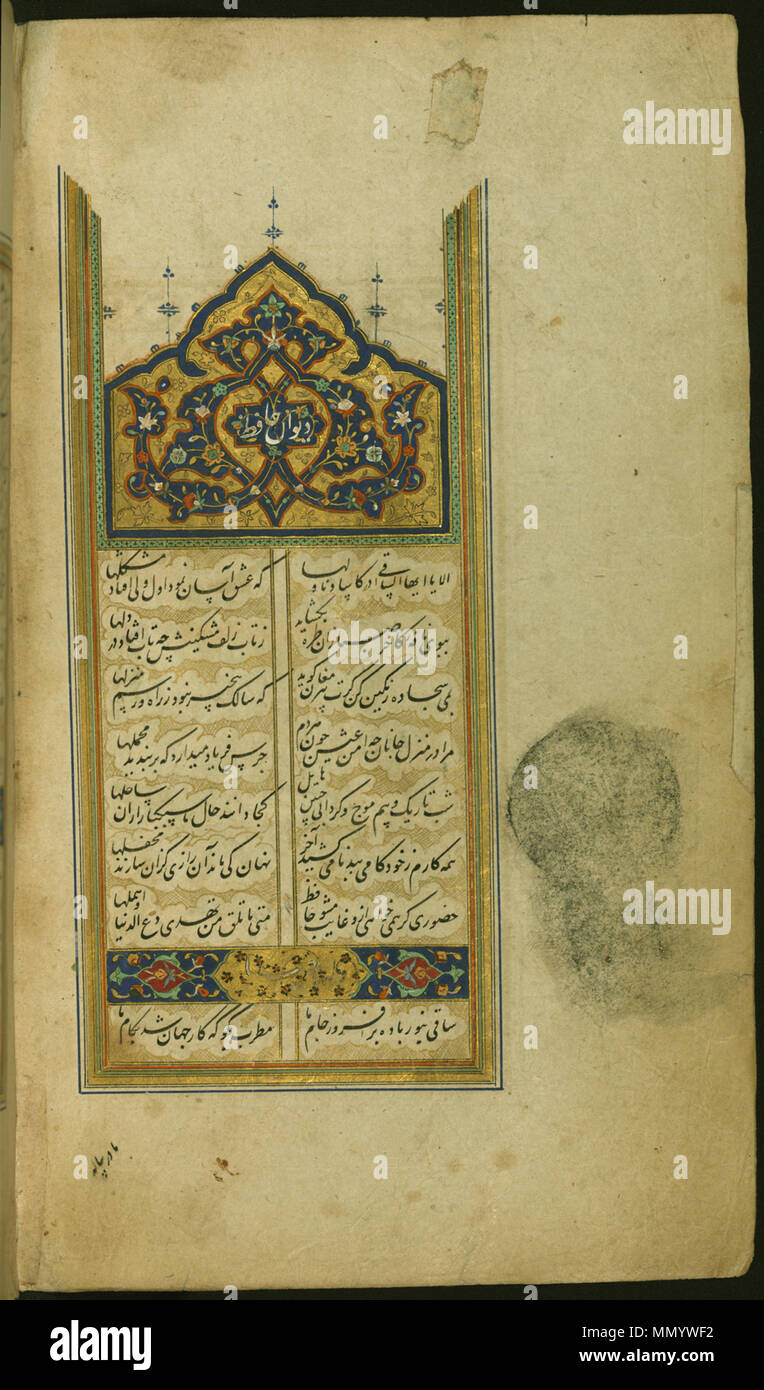 دیوان حافظ
الا یا ایها الساقی ادر کاسا و ناولها که عشق آسان نمود اول ولی افتاد مشکلها
ببوی نافه کاخر صبا زان طره بکشاید ز تاب زلف مشکینش چه تاب افتاد در دلها
بمی سجاده رنگین کن گرت پیر مغان گوید که سالک بیخبر نبود ز راه و رسم منزلها
مرا در منزل جانان چه امن عیش چون هردم جرس فریاد میدارد که بربندید محملها
شب تاریک و بیم موج و گردابی چنین هایل کجا دانند حال ما سبکباران ساحلها
همه کارم ز خود کامی ببدنامی کشید آخر نهان کی ماند آن رازی کزان سازند محفلها
حضوری گر همی خواهی ازو غایب مشو حافظ متی ما تلق من تهوی دع الدنیا و اهملها
ساقی بنور باده برافروز جام ما مطرب بگو که کار جهان شد بکام ما
ما در پیاله
alamy
Image ID: MMYWF2
www.alamy.com